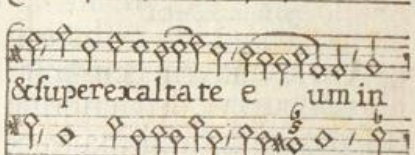 &ſuperexaltate e um in
6
5 6